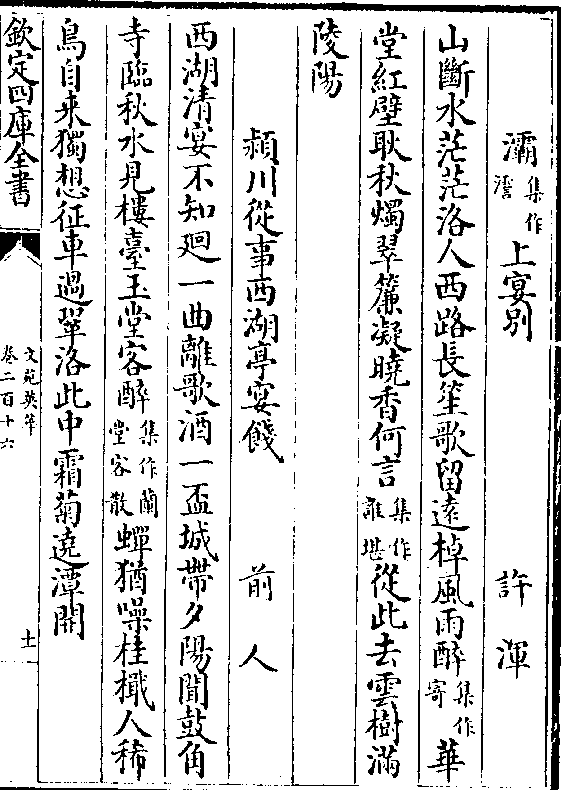 灞集作灃上宴别　許渾
山斷水茫茫洛人西路長笙歌留遠棹風雨醉集作寄華
堂紅壁耿秋燭翠簾凝曉香何言集作誰堪從此去雲樹滿
陵陽
頴川從事西湖亭宴餞　前人
西湖清宴不知廻一曲離歌酒一盃城帶夕陽聞鼓角
寺臨秋水見樓臺玉堂客醉集作蘭堂客散蟬猶噪桂檝人稀
鳥自来獨想征車過鞏洛此中霜菊遶潭開
欽定四庫全書
文苑英華
卷二百十六
十一